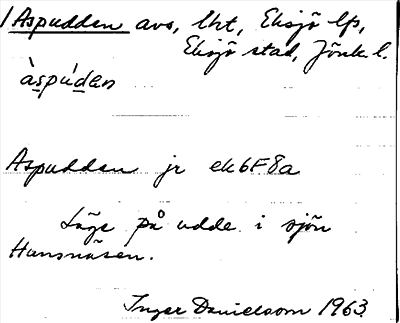 /Aspudden avs, lht, Eksjö lfs,
Eksjö stad, Jönk. l.
àspúden
Aspudden jr ek 6F8a
Läge på udde i sjön
Hunsnäsen.
Inger Danielsson 1963